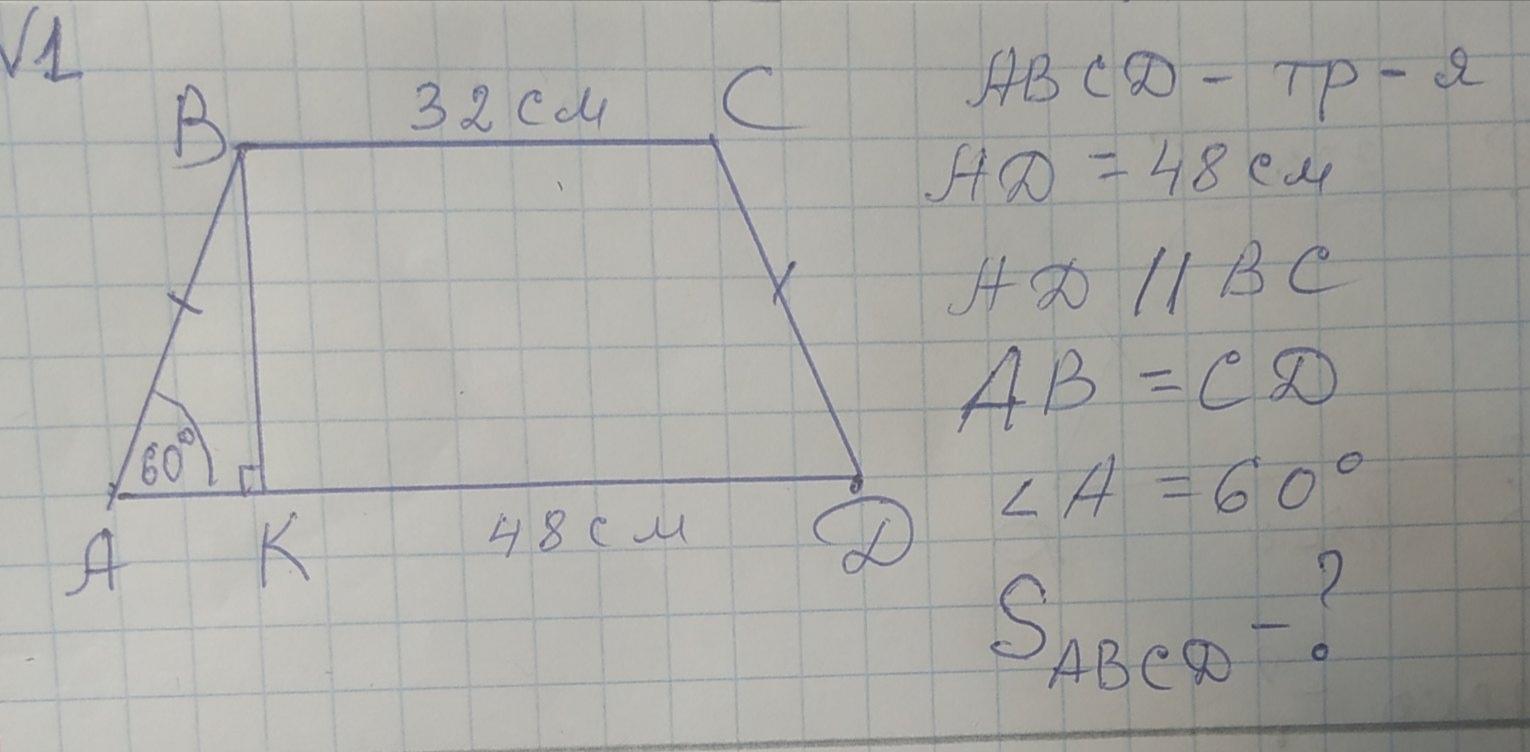 √1
B 32 см C
60°
A K 48 см D
ABCD - тр-я
AD = 48 см
AD || BC
AB = CD
∠A = 60°
S_ABCD - ?